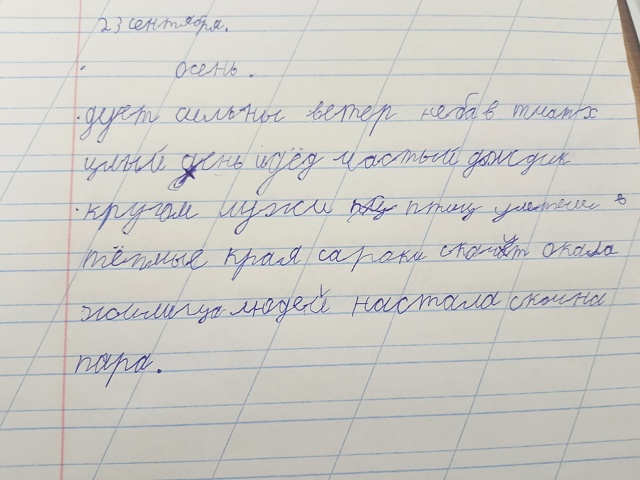 23 сентября.
Осень.
дует сильны ветер неба в тнатх
цлый день идёд частый дждик
кругом лужи птиц улетели в
тёплые края сароки скочат окала
жоилища людей настала скчна
пара.